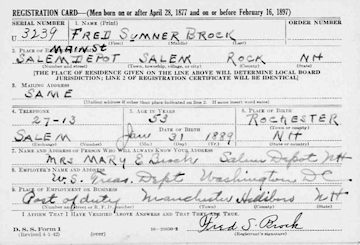 REGISTRATION CARD—(Men born on or after April 28, 1877 and on or before February 16, 1897)
SERIAL NUMBER 1. NAME (Print) ORDER NUMBER
U 3239 FRED SUMNER BROCK
(First) (Middle) (Last)
2. PLACE OF RESIDENCE (Print)
MAIN St
SALEM DEPOT SALEM ROCK NH
(Number and street) (Town, township, village, or city) (County) (State)
[THE PLACE OF RESIDENCE GIVEN ON THE LINE ABOVE WILL DETERMINE LOCAL BOARD
JURISDICTION; LINE 2 OF REGISTRATION CERTIFICATE WILL BE IDENTICAL]
3. MAILING ADDRESS
SAME
[Mailing address if other than place indicated on line 2. If same insert word same]
4. TELEPHONE 5. AGE IN YEARS 6. PLACE OF BIRTH
27-13 53 ROCHESTER
DATE OF BIRTH (Town or county)
SALEM Jan 31 1889 NH
(Exchange) (Number) (Mo.) (Day) (Yr.) (State or country)
7. NAME AND ADDRESS OF PERSON WHO WILL ALWAYS KNOW YOUR ADDRESS
Mrs Mary E Brock Salem Depot NH
8. EMPLOYER'S NAME AND ADDRESS
U.S. Treas. Dept Washington, DC
9. PLACE OF EMPLOYMENT OR BUSINESS
Post of duty Manchester NH
(Number and street or R. F. D. number) (Town) (County) (State)
I AFFIRM THAT I HAVE VERIFIED ABOVE ANSWERS AND THAT THEY ARE TRUE.
Fred S. Brock
D. S. S. Form 1
(Revised 4-1-42) (Registrant's signature)